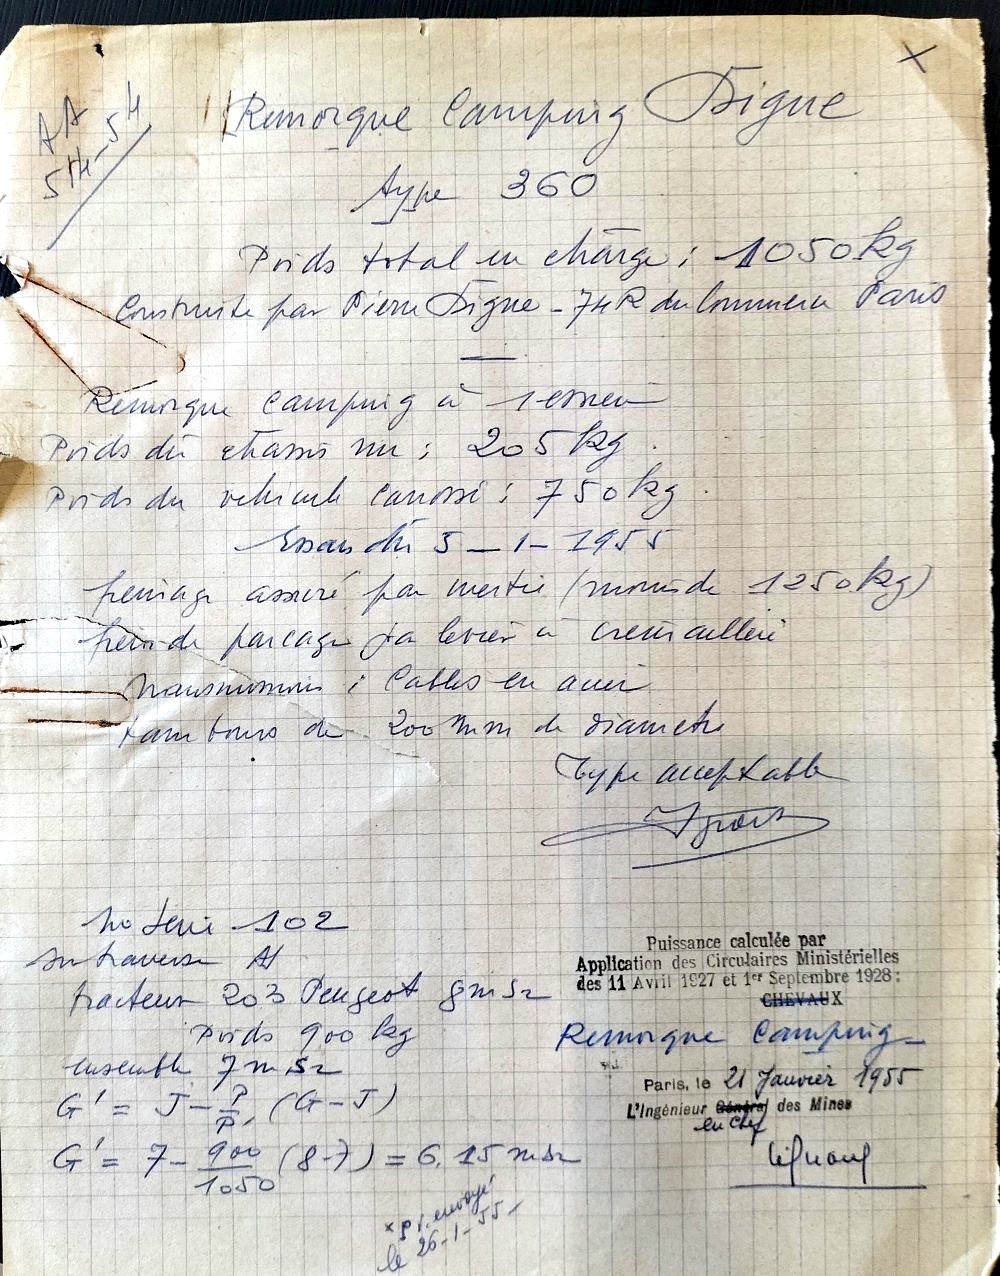 AA
514-54
Remorque Camping Digue
type 360
Poids total en charge : 1050 kg
Construite par Pierre Digue - 74 R du Commerce Paris
Remorque camping à 1 essieu
Poids du chassis nu : 205 kg.
Poids du vehicule carrossé : 750 kg.
Essais du 5-1-1955
freinage assuré par inertie (moins de 1250 kg)
frein de parcage par levier à cremaillere
Transmission : Cables en acier
tambours de 200 mm de diametre
Type acceptable
no serie 102
sur traverse AV
tracteur 203 Peugeot 8 m s2
Poids 900 kg
ensemble 7 m s2
G' = J - P/P' (G-J)
G' = 7 - 900/1050 (8-7) = 6,15 m s2
envoyé
le 26-1-55
Puissance calculée par
Application des Circulaires Ministérielles
des 11 Avril 1927 et 1er Septembre 1928 :
CHEVAUX
Remorque Camping
Paris, le 21 Janvier 1955
L'Ingénieur Général des Mines
en chef